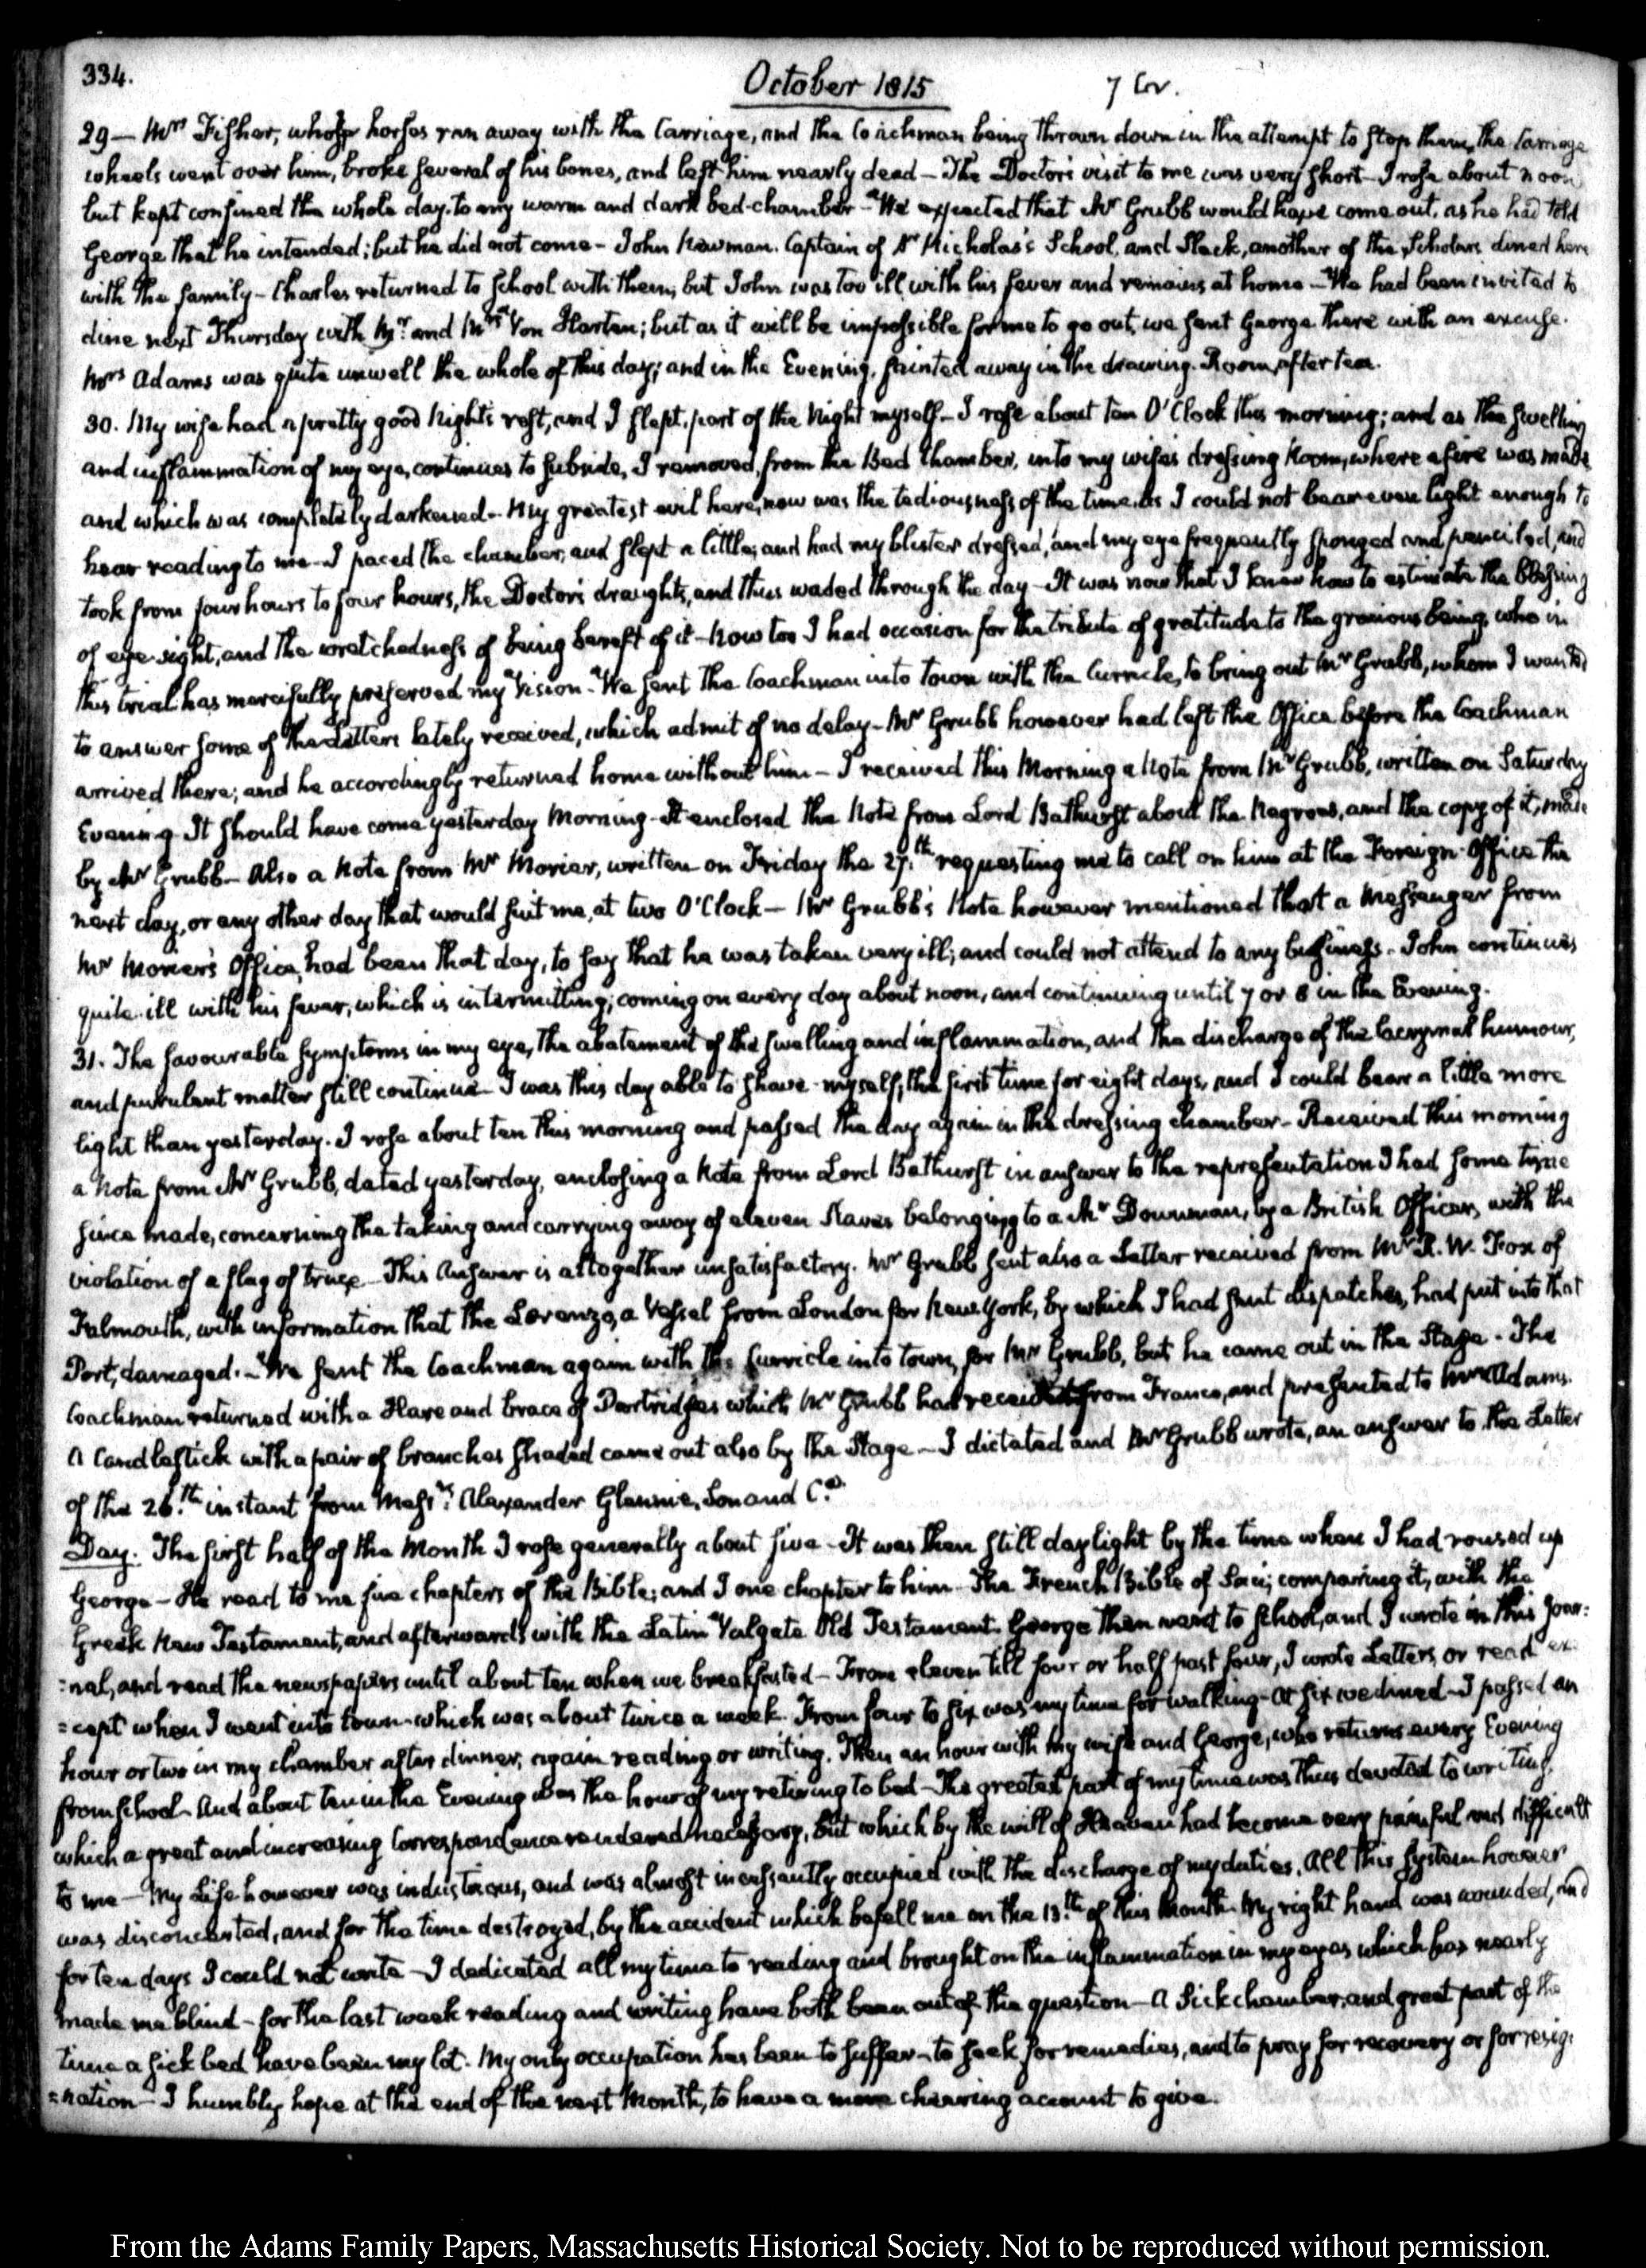 334.
October 1815
29 — Mrs. Fisher, whose horses ran away with the Carriage, and the Coachman being thrown down in the attempt to stop them, the Carriage
wheels went over him, broke several of his bones, and left him nearly dead — The Doctor's visit to me was very short — I rose about noon
but kept confined the whole day to my warm and dark bed-chamber — We expected that Mr Grubb would have come out, as he had told
George that he intended; but he did not come — John Newman, Captain of Dr Nicholas's School, and Slack, another of the Scholars dined here
with the family — Charles returned to School with them, but John was too ill with his fever and remains at home — We had been invited to
dine next Thursday with Mr. and Mrs. Von Harten; but as it will be impossible for me to go out, we sent George there with an excuse.
Mrs Adams was quite unwell the whole of this day; and in the Evening, fainted away in the drawing-Room, after tea.
30. My wife had a pretty good Night's rest, and I slept, part of the Night myself — I rose about ten O'Clock this morning; and as the swelling
and inflammation of my eye, continues to subside, I removed, from the Bed Chamber, into my wife's dressing Room, where a fire was made
and which was completely darkened — My greatest evil here, now was the tediousness of the time, as I could not bear even light enough to
hear reading to me — I paced the chamber, and slept a little; and had my blister dressed, and my eye frequently sponged and pencilled, and
took from four hours to four hours, the Doctor's draughts, and thus waded through the day — It was now that I knew how to estimate the blessing
of eye-sight, and the wretchedness of being bereft of it — Now too I had occasion for the tribute of gratitude to the gracious being, who in
this trial has mercifully preserved my Vision — We sent the Coachman into town with the Curricle, to bring out Mr Grubb, whom I wanted
to answer some of the Letters lately received, which admit of no delay — Mr Grubb however had left the Office before the Coachman
arrived there; and he accordingly returned home without him — I received this Morning a Note from Mr Grubb, written on Saturday
Evening. It should have come yesterday Morning — It enclosed the Note from Lord Bathurst about the Negroes, and the copy of it, made
by Mr Grubb — Also a Note from Mr Morier, written on Friday the 27.th requesting me to call on him at the Foreign Office the
next day, or any other day that would suit me, at two O'Clock — Mr Grubb's Note however mentioned that a Messenger from
Mr Morier's Office, had been that day, to say that he was taken very ill, and could not attend to any business. John continues
quite ill with his fever, which is intermitting; coming on every day about noon, and continuing until 7 or 8 in the Evening.
31. The favourable symptoms in my eye, the abatement of the swelling and inflammation, and the discharge of the lacrymal humour,
and purulent matter still continue — I was this day able to shave myself, the first time for eight days, and I could bear a little more
light than yesterday. I rose about ten this morning and passed the day again in the dressing chamber — Received this morning
a Note from Mr Grubb, dated yesterday, enclosing a Note from Lord Bathurst in answer to the representation I had some time
since made, concerning the taking and carrying away of eleven Slaves belonging to a Mr Downman, by a British Officer, with the
violation of a flag of truce — This Answer is altogether unsatisfactory. Mr Grubb sent also a Letter received from Mr R. W. Fox of
Falmouth, with information that the Lorenzo, a Vessel from London for New York, by which I had sent dispatches, had put into that
Port, damaged. — We sent the Coachman again with the Curricle into town, for Mr Grubb, but he came out in the Stage — The
Coachman returned with a Hare and brace of Partridges which Mr Grubb had received from France, and presented to Mrs Adams.
A Candlestick with a pair of branches shaded came out also by the Stage — I dictated and Mr Grubb wrote, an answer to the Letter
of the 26.th instant from Messrs. Alexander Glennie, Son and Co.
Day. The first half of the Month I rose generally about five — It was then still daylight by the time when I had roused up
George — He read to me five chapters of the Bible; and I one chapter to him — The French Bible of Saci; comparing it, with the
Greek New Testament, and afterwards with the Latin Vulgate Old Testament. George then went to School, and I wrote in this Jour:
:nal, and read the newspapers until about ten when we breakfasted — From eleven till four or half past four, I wrote Letters, or read ex-
=cept when I went into town — which was about twice a week. From four to six was my time for walking — At six we dined — I passed an
hour or two in my chamber after dinner, again reading or writing. Then an hour with my wife and George, who returns every Evening
from School — And about ten in the Evening was the hour of my retiring to bed — The greatest part of my time was thus devoted to writing,
which a great and increasing Correspondence rendered necessary, but which by the will of Heaven had become very painful and difficult
to me — My Life however was industrious, and was almost incessantly occupied with the discharge of my duties. All this system however
was disconcerted, and for the time destroyed, by the accident which befell me on the 13.th of this Month. My right hand was wounded, and
for ten days I could not write — I dedicated all my time to reading and brought on the inflammation in my eyes which has nearly
made me blind — for the last week reading and writing have both been out of the question — A Sick chamber, and great part of the
time a sick bed have been my lot. My only occupation has been to suffer — to seek for remedies, and to pray for recovery or for resig-
=nation — I humbly hope at the end of the next Month, to have a more cheering account to give.
From the Adams Family Papers, Massachusetts Historical Society. Not to be reproduced without permission.